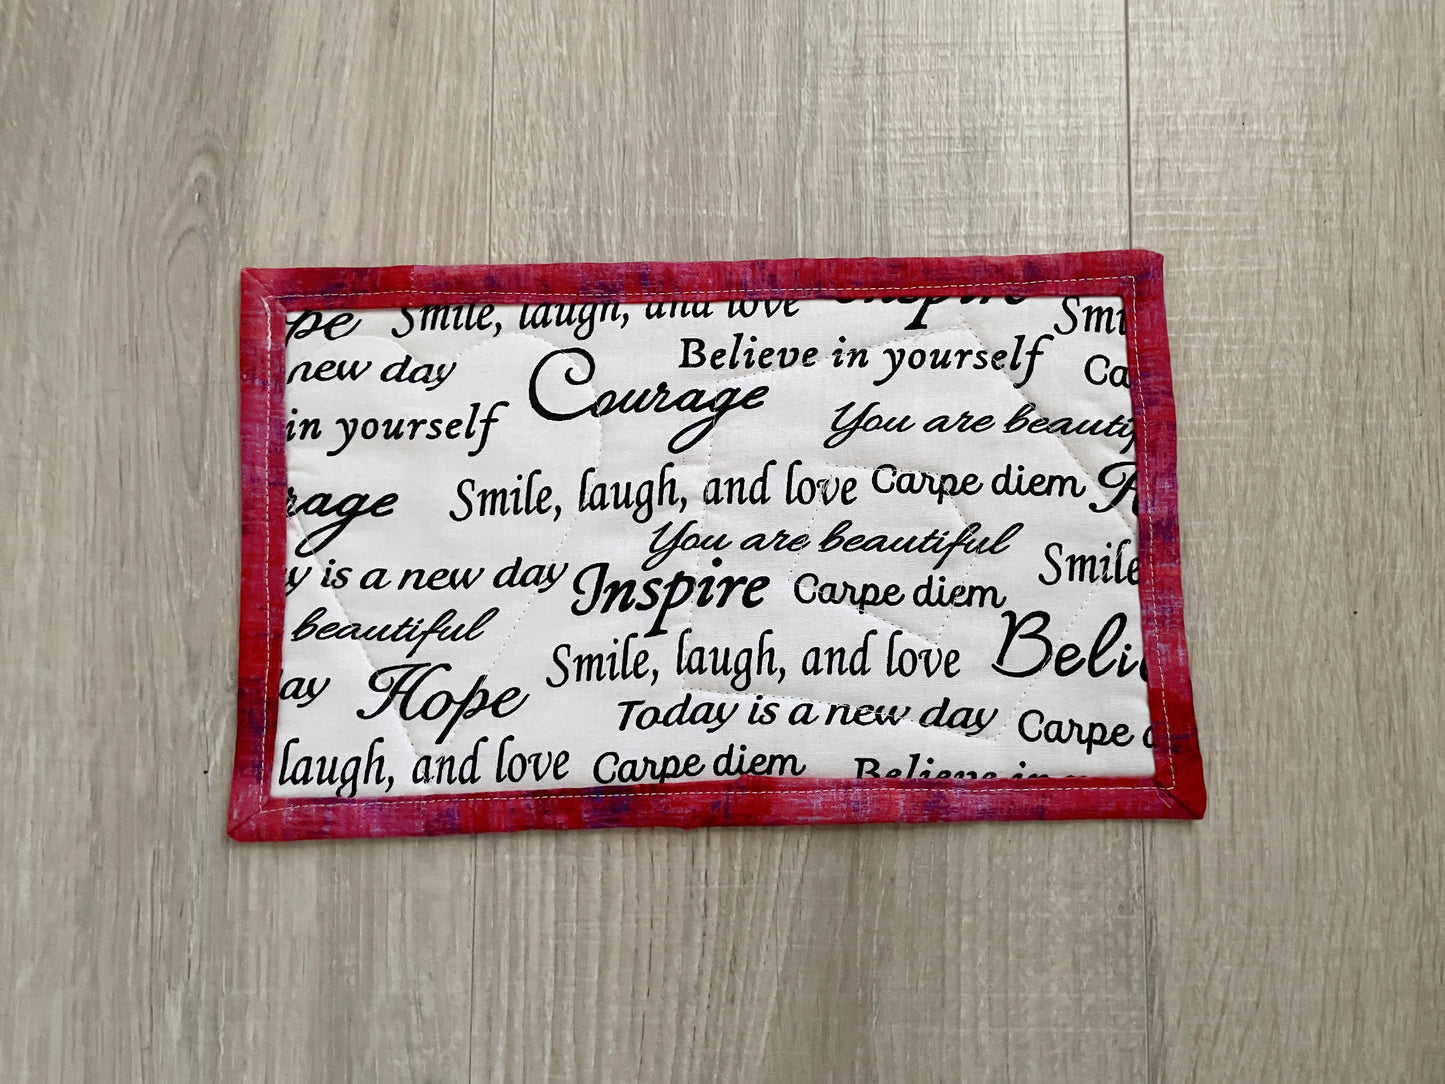 pe Smile, laugh, and love Inspire Smi
Believe in yourself
new day Courage Ca
in yourself You are beautif
rage Smile, laugh, and love Carpe diem H
You are beautiful
y is a new day Inspire Carpe diem Smile
beautiful
Smile, laugh, and love Beli
ay Hope
Today is a new day Carpe d
laugh, and love Carpe diem Believe in